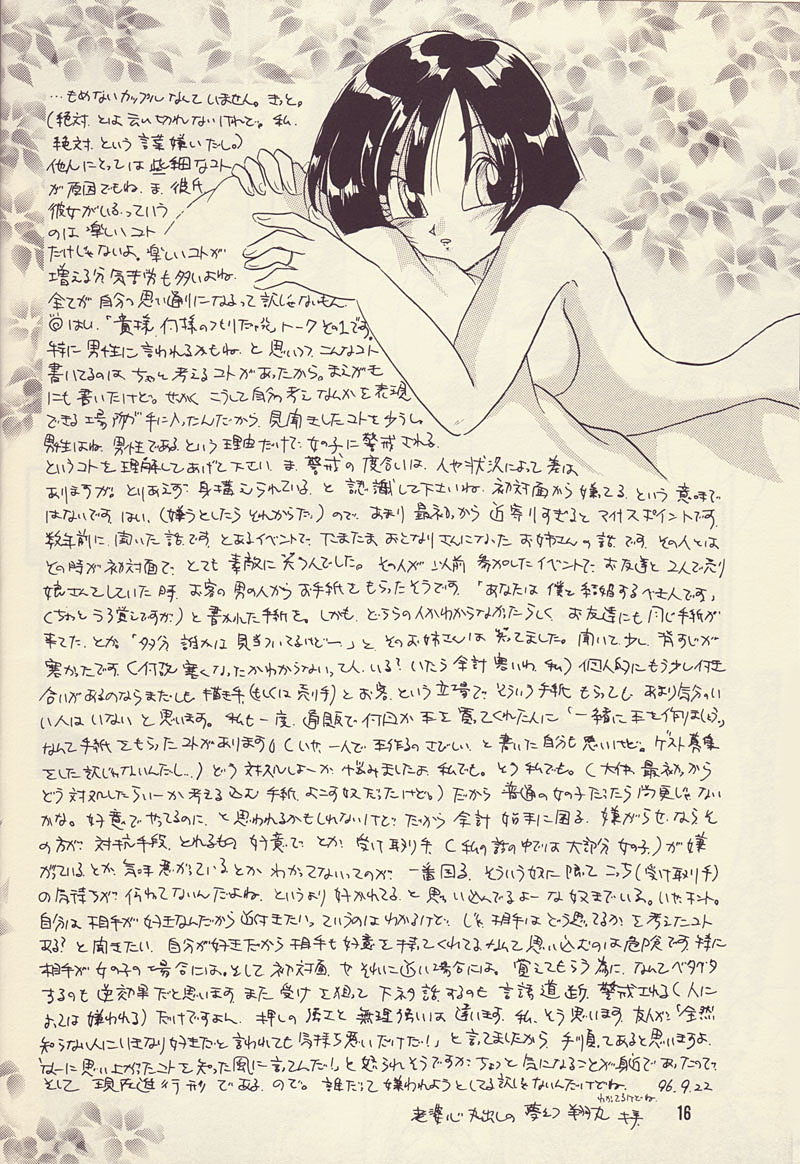 …もめないカップルなんていません。きっと。
(絶対とは云い切れないけれど。私、
絶対という言葉嫌いだし。)
他人にとっては些細なコト
が原因でもね。ま、彼氏
彼女がいるっていう
のは楽しいコト
だけじゃないよ。楽しいコトが
増える分気苦労も多いよね。
全てが自分の思い通りになるって訳じゃないもん。
はい、「貴様、何様のつもりだっ」トークその1です。
特に男性に言われるかもね、と思いつつ、こんなコト
書いてるのは ちゃんと考えるコトがあったから。まえがき
にも書いたけど、せっかくこうして自分の考えなんかを表現
できる場所が手に入ったんだから、見聞きしたコトを少し。
男性はね、男性であるという理由だけで女の子に警戒される。
というコトを理解してあげて下さい。ま、警戒の度合いは、人や状況によって差は
ありますが。とりあえず身構えられている、と認識して下さいね。初対面から嫌ってる、という意味で
はないです、はい。(嫌うとしたらそれからだ。)ので、あまり最初っから近寄りすぎるとマイナスポイントです。
数年前に聞いた話です。とあるイベントで、たまたまおとなりさんになったお姉さんの話です。その人とは
その時が初対面で、とても素敵に笑う人でした。その人が以前参加したイベントで、お友達と2人で売り
娘さんをしていた時、お客の男の人からお手紙をもらったそうです。「あなたは僕と結婚するべき人です」
(ちょっとうろ覚えですが)と書かれた手紙を。しかも、どちらの人かわからなかったらしく、お友達にも同じ手紙が
来てた、とか。「多分誰かは見当ついてるけどー」と、そのお姉さんは笑ってました。聞いて少し、背すじが
寒かったです。(何故寒くなったかわからないって人、いる？いたら余計悪いわ、私)個人的にもう少し付き
合いがあるのならまだしも、描き手(もしくは売り手)とお客、という立場で、そういう手紙もらっても、あまり気分のい
い人はいないと思います。私も一度、通販で何回か本を買ってくれた人に「一緒に本を作りましょう」
なんて手紙をもらったコトがあります。(いや、一人で本作るのさびしい、と書いた自分も悪いけど。ゲスト募集
をした訳じゃないんだし…)どう対処しよーか悩みましたよ、私でも。そう私でも。(大体、最初っから
どう対処したらいーか考え込む手紙、よこす奴だったけど。)だから普通の女の子だったら尚更じゃない
かな。好意でやってるのに、と思われるかもしれないけど、だから余計始末に困る。嫌がらせならそ
の方が対抗手段、とれるもの。好意で、とか、受け取り手(私の話の中では大部分女の子。)が嫌
がっているとか、気味悪がっているとか、わかってないってのが、一番困る。そういう奴に限って、こっち(受け取り手)
の気持ちが伝わってないんだよね。というより好かれてる、と思い込んでるよーな奴までいる。いや、ホント。
自分は相手が好きなんだから近付きたい、っていうのはわかるけど、じゃ、相手はどう思ってるかを考えたコト
ある？と聞きたい。自分が好きだから相手も好意を持ってくれてる、なんて思い込むのは危険です。特に
相手が女の子の場合には。そして初対面やそれに近い場合には。覚えてもらう為になんてベタベタ
するのも逆効果だと思います。また受けを狙って下ネタ話するのも言語道断、警戒される(人に
よっては嫌われる)だけですよん。押しの強さと無理強いは違います。私、そう思います。友人が「全然
知らない人にいきなり好きだと言われても気持ち悪いだけだ！」と言ってましたから、手順ってあると思いますよ。
「なーに思い上がったコトを知った風に言ってんだ！」と怒られそうですが、ちょっと気になることが身近であったので。
そして現在進行形である。ので。誰だって嫌われようとしてる訳じゃないんだけどね。 96.9.22
わかってるけどね。
老婆心丸出しの 夢幻 翔丸
16